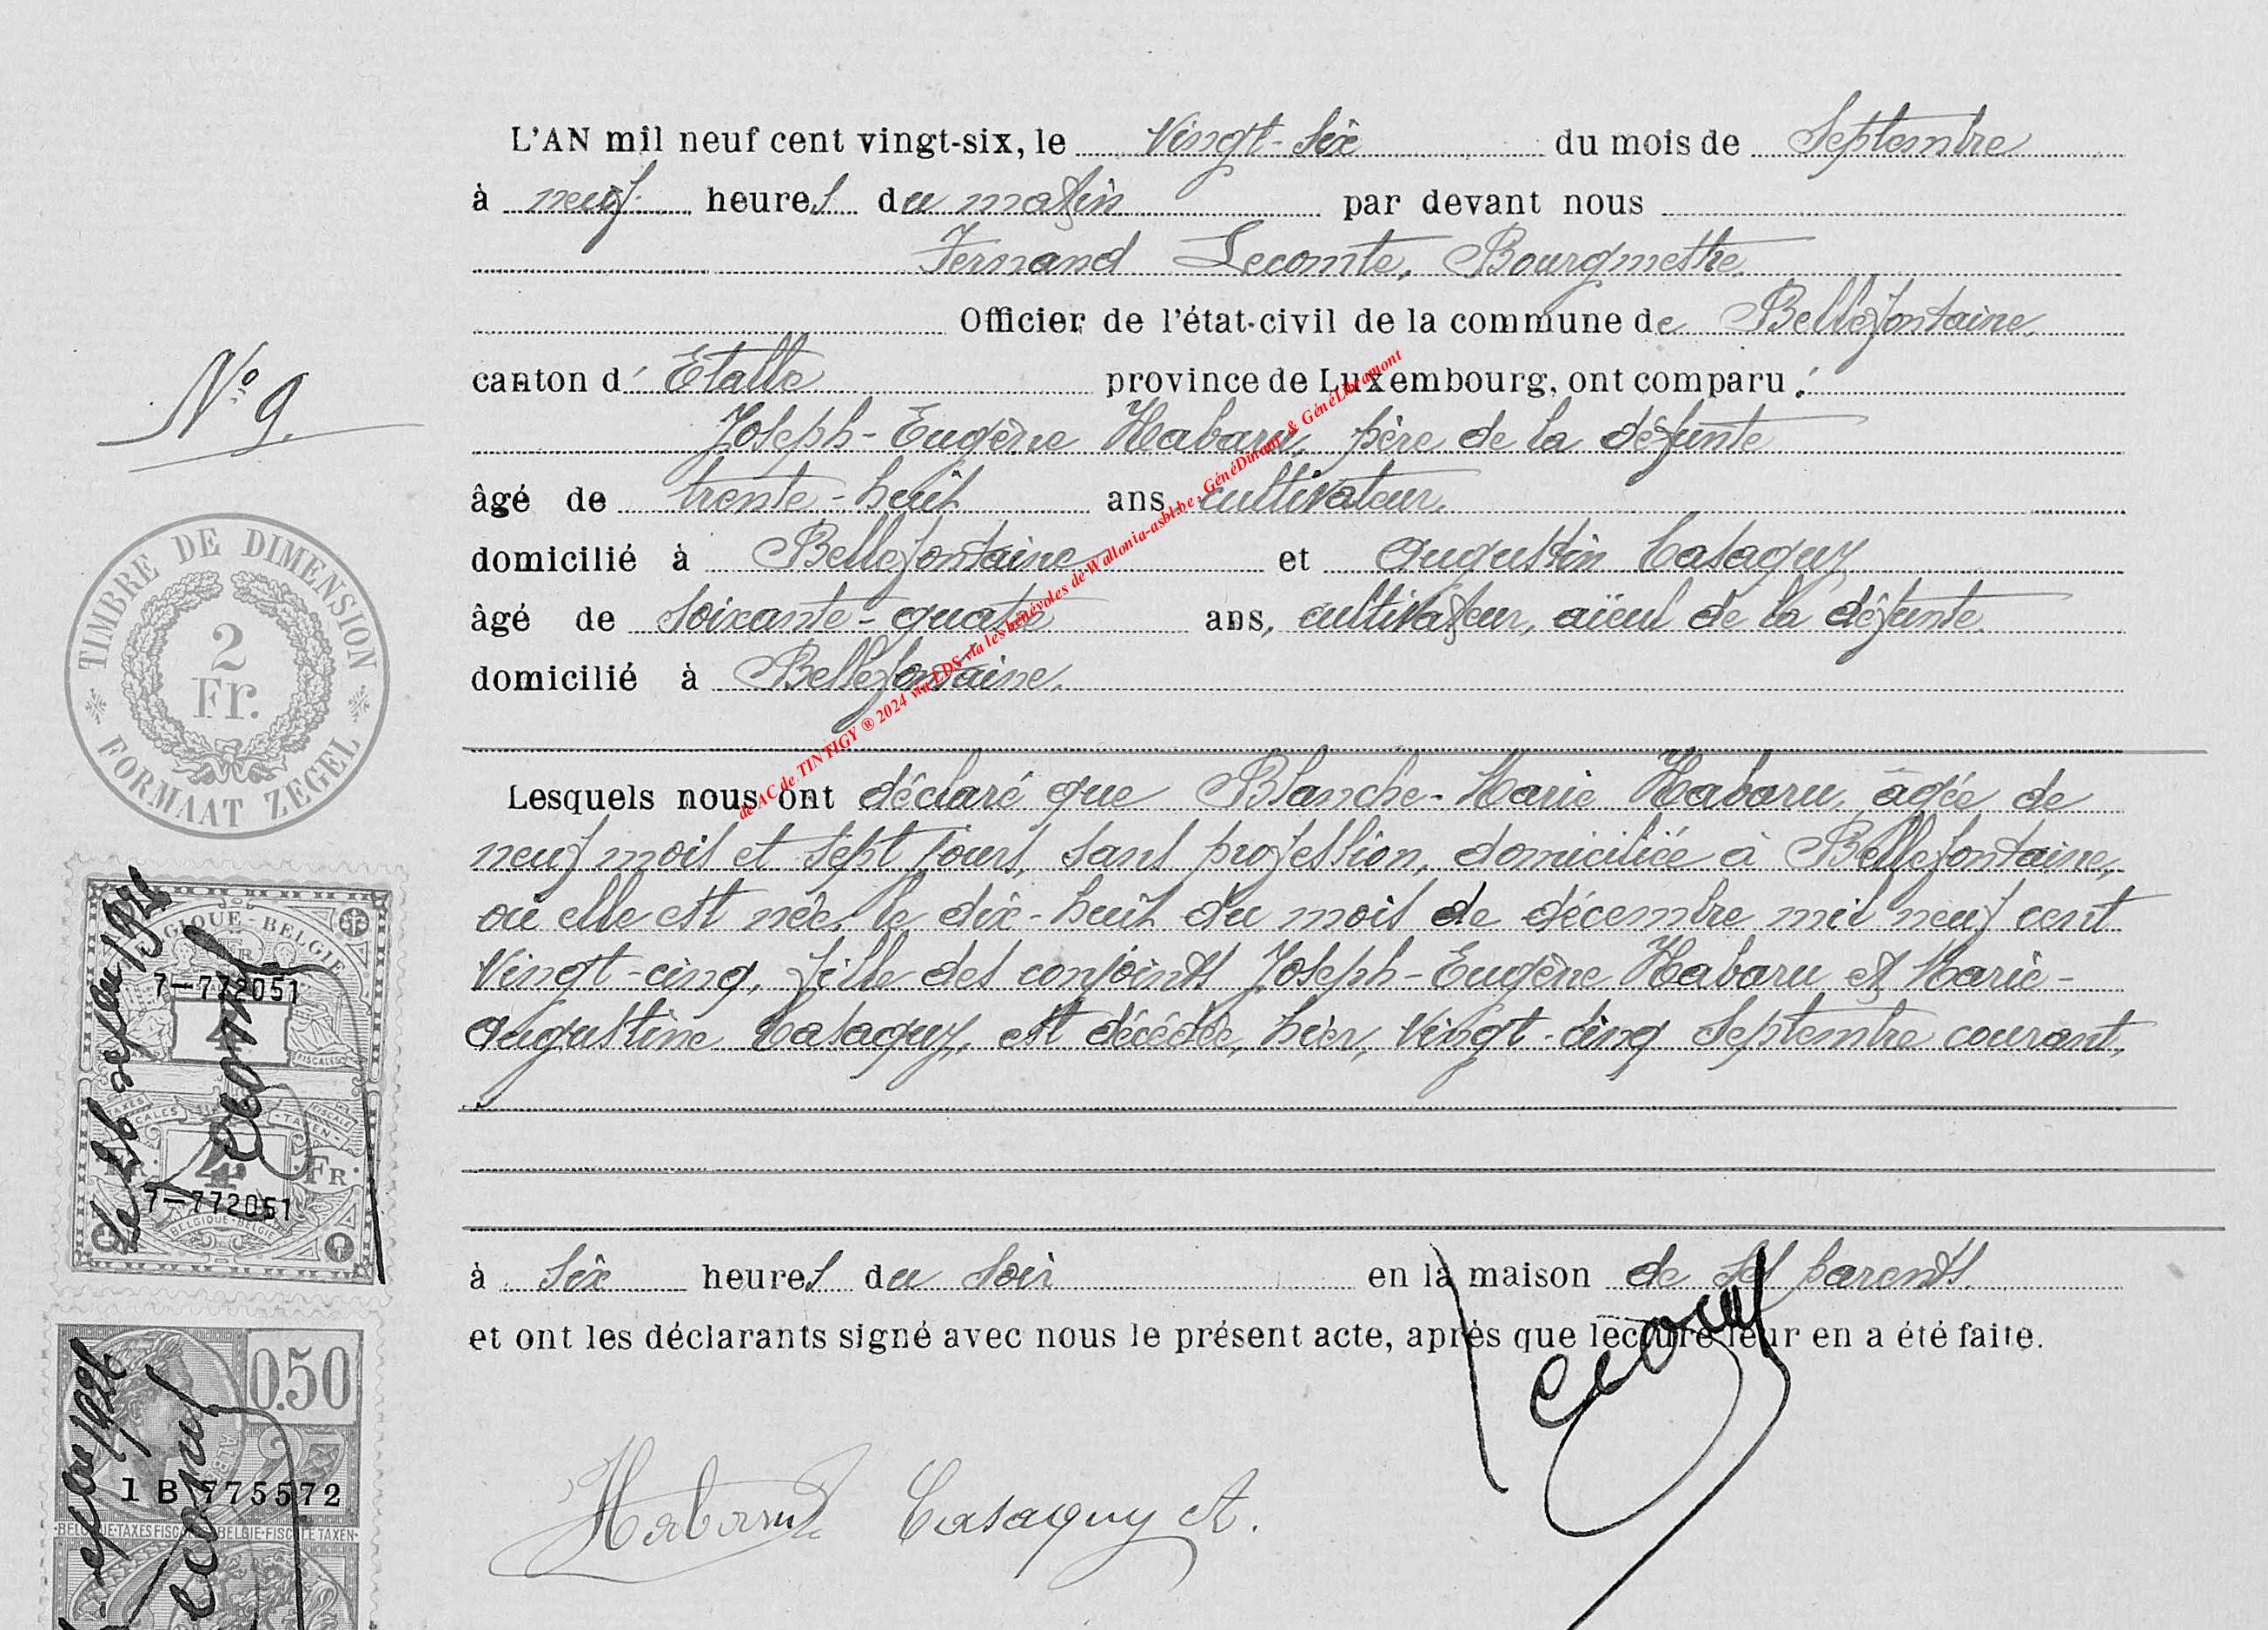 L'AN mil neuf cent vingt-six, le Vingt-Six du mois de Septembre
à neuf heures du matin par devant nous
Fernand Lecomte, Bourgmestre
Officier de l'état-civil de la commune de Bellefontaine,
canton d' Etalle province de Luxembourg, ont comparu :
Joseph-Eugène Habaru, père de la défunte
âgé de trente-huit ans, cultivateur,
domicilié à Bellefontaine et Augustin Casaquy
âgé de soixante-quatre ans, cultivateur, aïeul de la défunte
domicilié à Bellefontaine.
Lesquels nous ont déclaré que Blanche-Marie Habaru, âgée de
neuf mois et sept jours, sans profession, domiciliée à Bellefontaine,
où elle est née, le dix-huit du mois de décembre mil neuf cent
vingt-cinq, fille des conjoints Joseph-Eugène Habaru et Marie-
Augustine Casaquy, est décédée, hier, vingt-cinq Septembre courant,
à six heures du soir en la maison de ses parents.
et ont les déclarants signé avec nous le présent acte, après que lecture leur en a été faite.
Habaru Casaquy A. Lecomte
N° 9.
TIMBRE DE DIMENSION
2
Fr.
FORMAAT ZEGEL
BELGIQUE-BELGIE
7-772051
4
FISCALES
TAXES FISCALES
TAXEN
FR. 4 FR.
7-772051
BELGIQUE-BELGIE
Le 26 septbre 1926
Lecomte
0.50
1 B 775572
BELGIQUE-TAXES FISCALES BELGIE-FISCALE TAXEN
septbre 1926
Lecomte
de AC de TINTIGY ® 2024 via LDS via les bénévoles de Wallonia-asbl.be, GénéDinant & GénéLibramont